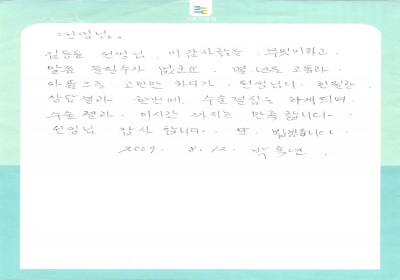 선생님.
김동윤 선생님. 이 감사함을 무엇이라고
말씀 드릴수가 없군요. 몇 년을 고통과
아픔으로 고민만 하다가 선생님의 친절한
상담결과 한번에 수술결심을 하게되며
수술결과. 이시간 까지는 만족합니다-
선생님 감사 합니다- 또 뵙겠습니다
2009. 8. 12.